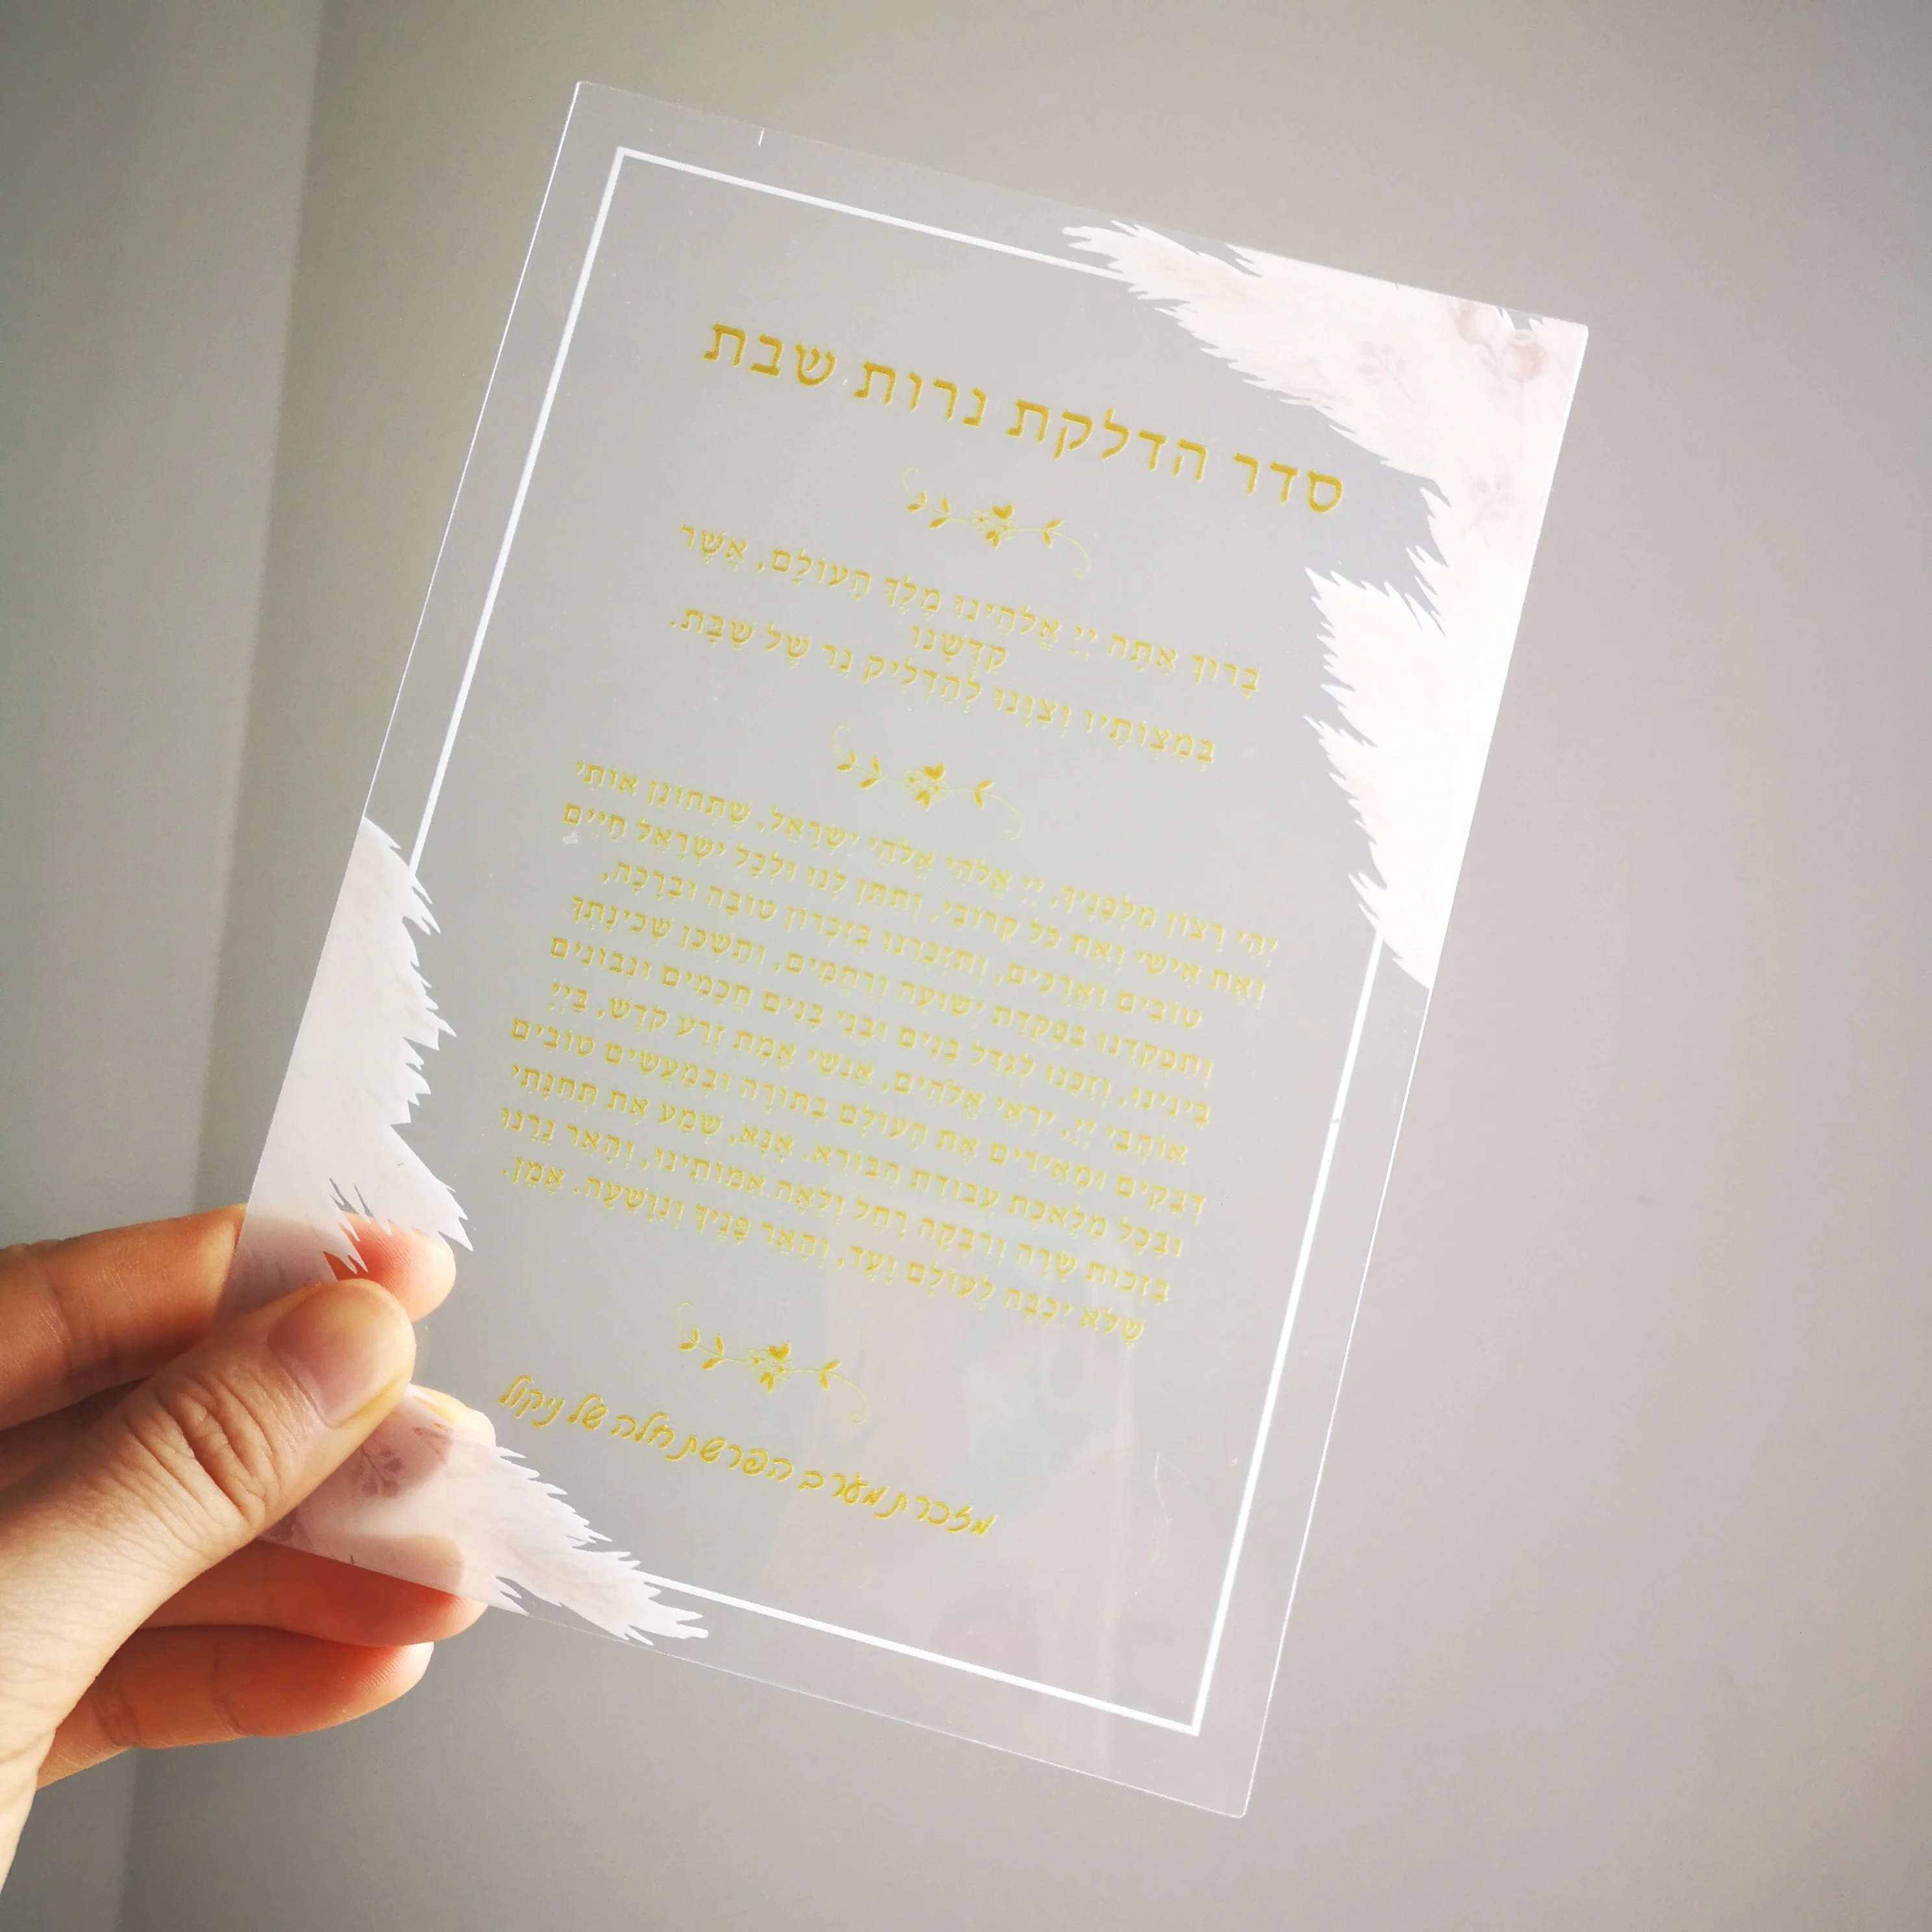 סדר הדלקת נרות שבת
בָּרוּךְ אַתָּה יְיָ אֱלֹהֵינוּ מֶלֶךְ הָעוֹלָם, אֲשֶׁר
קִדְּשָׁנוּ
בְּמִצְוֹתָיו וְצִוָּנוּ לְהַדְלִיק נֵר שֶׁל שַׁבָּת.
יְהִי רָצוֹן מִלְּפָנֶיךָ, יְיָ אֱלֹהַי אֱלֹהֵי יִשְׂרָאֵל, שֶׁתְּחוֹנֵן אוֹתִי
וְאֶת אִישִׁי וְאֶת כֹּל קְרוֹבַי, וְתִתֵּן לָנוּ וּלְכָל יִשְׂרָאֵל חַיִּים
טוֹבִים וַאֲרֻכִּים, וְתִזְכְּרֵנוּ בְּזִכְרוֹן טוֹבָה וּבְרָכָה,
וְתִפְקְדֵנוּ בִּפְקֻדַּת יְשׁוּעָה וְרַחֲמִים, וְתַשְׁכֵּן שְׁכִינָתְךָ
בֵּינֵינוּ, וְזַכֵּנוּ לְגַדֵּל בָּנִים וּבְנֵי בָנִים חֲכָמִים וּנְבוֹנִים
אוֹהֲבֵי יְיָ, יִרְאֵי אֱלֹהִים, אַנְשֵׁי אֱמֶת זֶרַע קֹדֶשׁ, בַּיְיָ
דְּבֵקִים וּמְאִירִים אֶת הָעוֹלָם בַּתּוֹרָה וּבְמַעֲשִׂים טוֹבִים
וּבְכָל מְלֶאכֶת עֲבוֹדַת הַבּוֹרֵא. אָנָּא, שְׁמַע אֶת תְּחִנָּתִי
בִּזְכוּת שָׂרָה וְרִבְקָה רָחֵל וְלֵאָה אִמּוֹתֵינוּ, וְהָאֵר נֵרֵנוּ
שֶׁלֹּא יִכְבֶּה לְעוֹלָם וָעֶד, וְהָאֵר פָּנֶיךָ וְנִוָּשֵׁעָה. אָמֵן.
מזכרת מערב הפרשת חלה של ניקול